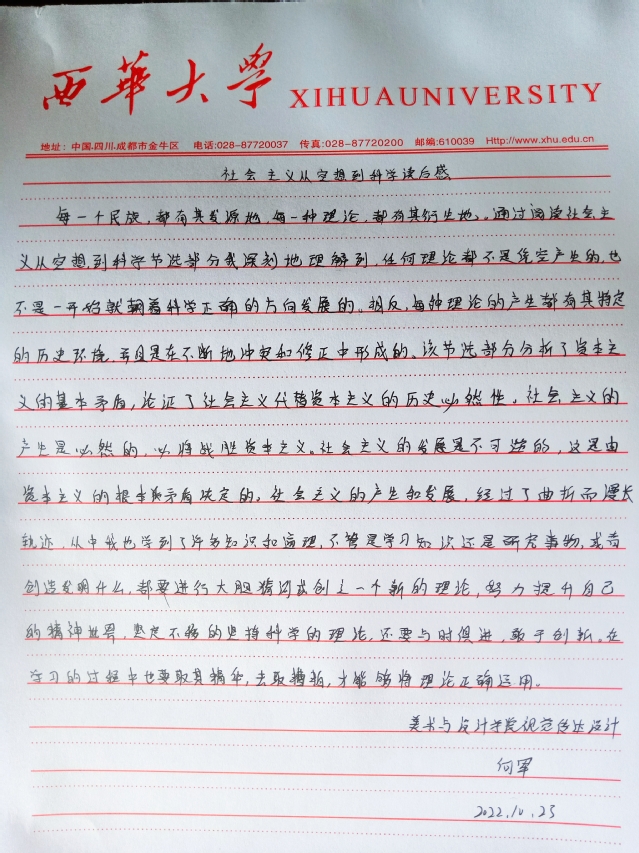 西華大学 XIHUAUNIVERSITY
地址：中国.四川.成都市金牛区 电话:028-87720037 传真:028-87720200 邮编:610039 Http://www.xhu.edu.cn
社会主义从空想到科学读后感
每一个民族，都有其发源地，每一种理论，都有其衍生地。通过阅读社会主
义从空想到科学节选部分我深刻地理解到，任何理论都不是凭空产生的，也
不是一开始就朝着科学正确的方向发展的。相反，每种理论的产生都有其特定
的历史环境，并且是在不断地冲突和修正中形成的。该节选部分分析了资本主
义的基本矛盾，论证了社会主义代替资本主义的历史必然性。社会主义的
产生是必然的，必将战胜资本主义。社会主义的发展是不可逆的，这是由
资本主义的根本矛盾决定的。社会主义的产生和发展，经过了曲折而漫长
轨迹，从中我也学到了许多知识和道理，不管是学习知识还是研究事物，或者
创造发明什么，都要进行大胆猜测或创立一个新的理论，努力提升自己
的精神世界，坚定不移的坚持科学的理论，还要与时俱进，敢于创新。在
学习的过程中也要取其精华，去取糟粕，才能够将理论正确运用。
美术与设计学院视觉传达设计
何军
2022.10.23